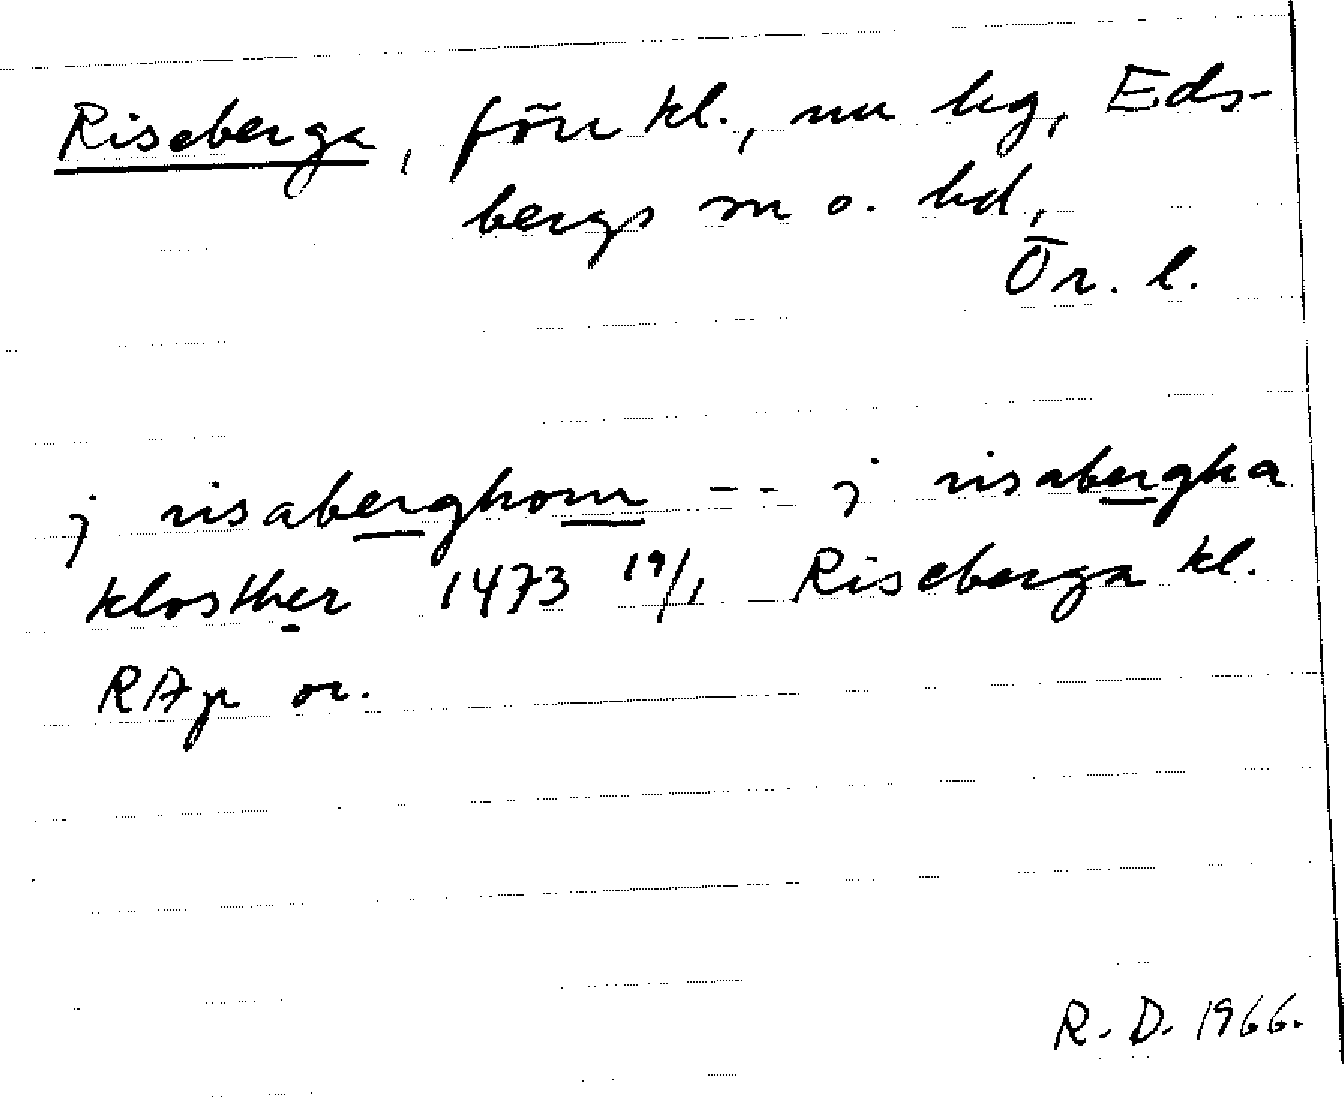 Riseberga, förr kl., nu hg, Eds-
bergs sn o. hd,
Ör. l.
j risaberghom -- j risabergha
klosther 1473 19/1 Riseberga kl.
RAp or.
R. D. 1966.